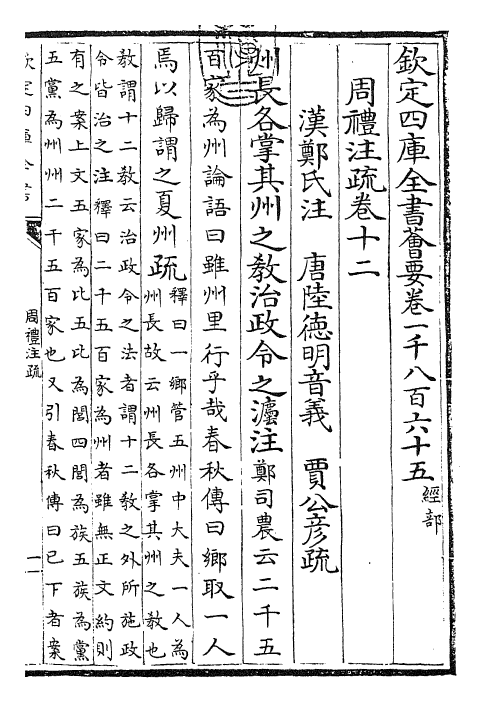 欽定四庫全書薈要卷一千八百六十五 經部
周禮注疏卷十二
漢鄭氏注 唐陸德明音義 賈公彦疏
州長各掌其州之教治政令之灋注鄭司農云二千五
百家為州論語曰雖州里行乎哉春秋傳曰鄉取一人
焉以歸謂之夏州疏釋曰一鄉管五州中大夫一人為
州長故云州長各掌其州之教也
教謂十二教云治政令之法者謂十二教之外所施政
令皆治之注釋曰二千五百家為州者雖無正文約則
有之案上文五家為比五比為閭四閭為族五族為黨
五黨為州州二千五百家也又引春秋傳曰已下者案
欽定四庫全書
周禮注疏
一